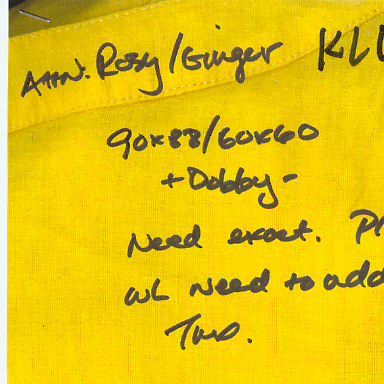 Attn: Rosy/Ginger KLL
90x88/60x60
+ Dobby -
Need exact. Pl
wL need to add
Two.